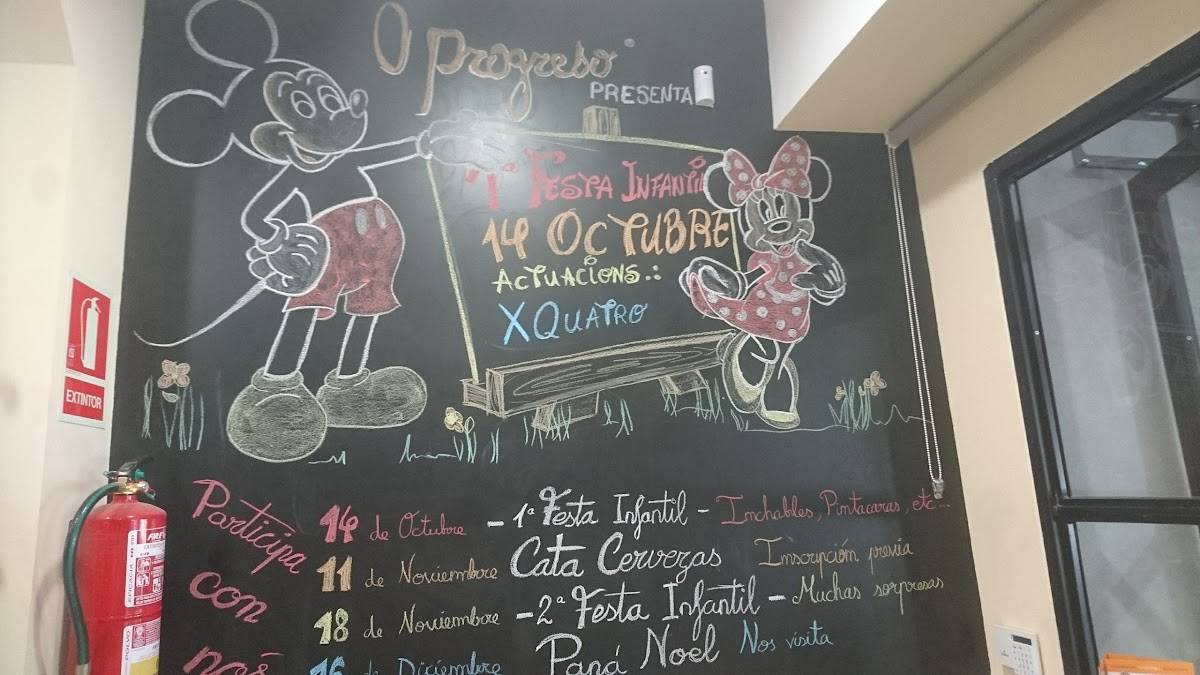 O Progreso
PRESENTA
1ª FESTA INFANTIL
14 OCTUBRE
ACTUACIONS.:
X QUATRO
EXTINTOR
Participa
con
nós
14 de Octubre – 1ª Festa Infantil – Inchables, Pintacaras, etc...
11 de Noviembre Cata Cervezas Inscripción previa
18 de Noviembre – 2ª Festa Infantil – Muchas sorpresas
16 de Diciembre Papá Noel Nos visita
EFICACIA
POLVO